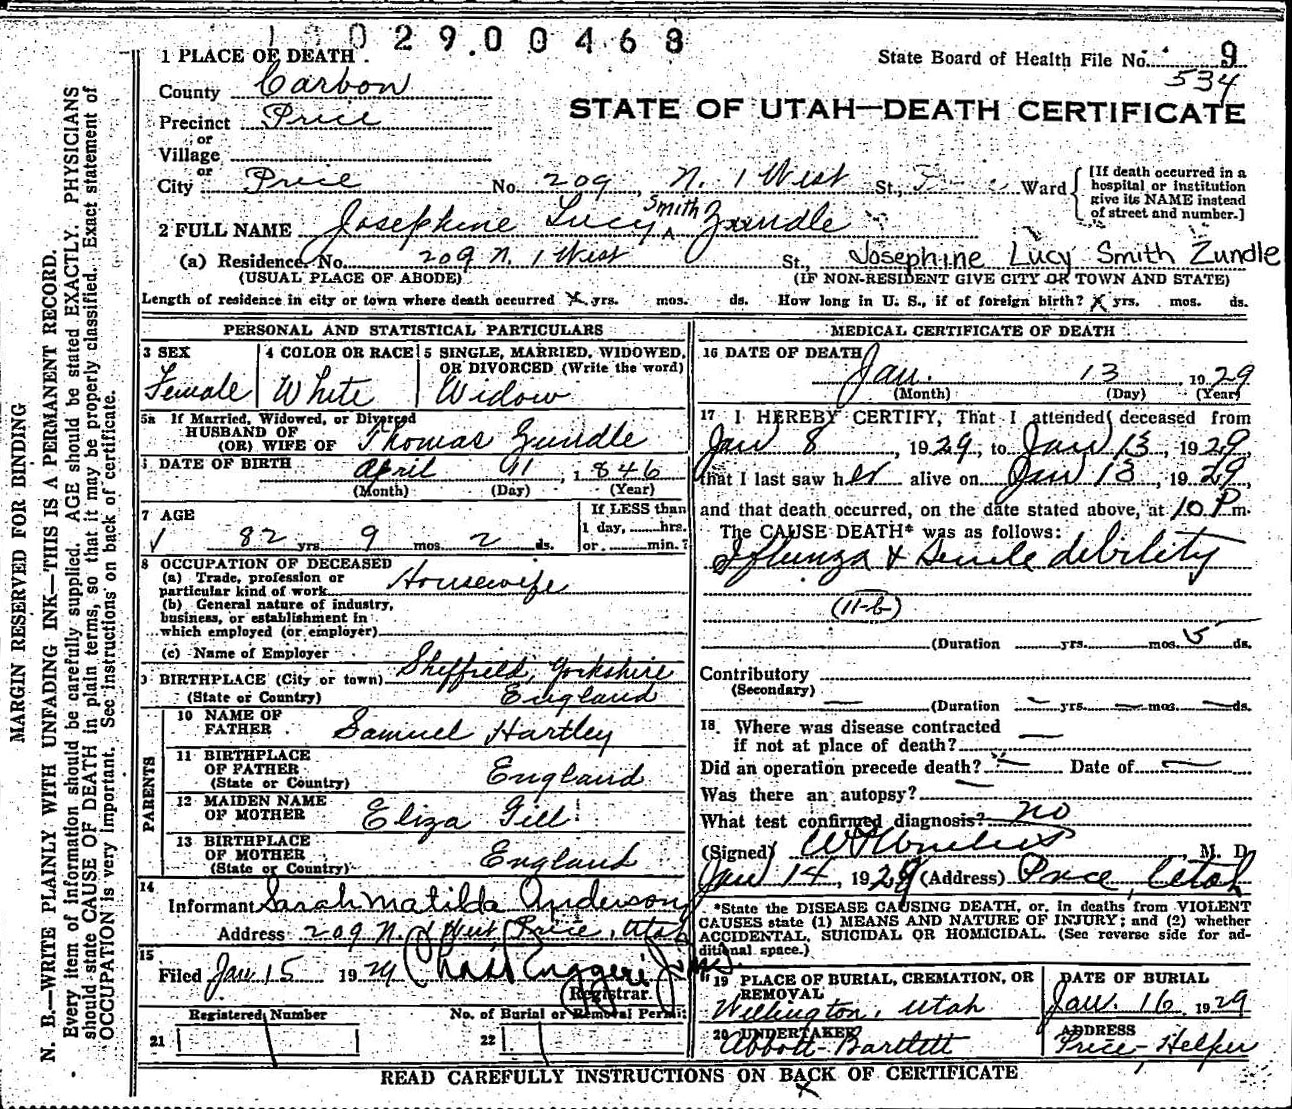 029.00468
1 PLACE OF DEATH
State Board of Health File No. 9
534
County Carbon
STATE OF UTAH—DEATH CERTIFICATE
Precinct Price
or
Village
or
City Price No. 209 N. 1 West St., Ward
[If death occurred in a hospital or institution give its NAME instead of street and number.]
2 FULL NAME Josephine Lucy Smith Zundle
(a) Residence. No. 209 N. 1 West St., Josephine Lucy Smith Zundle
(USUAL PLACE OF ABODE) (IF NON-RESIDENT GIVE CITY OR TOWN AND STATE)
Length of residence in city or town where death occurred x yrs. mos. ds. How long in U. S., if of foreign birth? x yrs. mos. ds.
PERSONAL AND STATISTICAL PARTICULARS
3 SEX Female
4 COLOR OR RACE White
5 SINGLE, MARRIED, WIDOWED, OR DIVORCED (Write the word) Widow
5a If Married, Widowed, or Divorced
HUSBAND OF
(OR) WIFE OF Thomas Zundle
DATE OF BIRTH April 11, 1846
(Month) (Day) (Year)
7 AGE
82 yrs. 9 mos. 2 ds.
If LESS than
1 day, hrs.
or min.?
8 OCCUPATION OF DECEASED
(a) Trade, profession or
particular kind of work Housewife
(b) General nature of industry,
business, or establishment in
which employed (or employer)
(c) Name of Employer
9 BIRTHPLACE (City or town) Sheffield, Yorkshire
(State or Country) England
PARENTS
10 NAME OF
FATHER Samuel Hartley
11 BIRTHPLACE
OF FATHER England
(State or Country)
12 MAIDEN NAME
OF MOTHER Eliza Gill
13 BIRTHPLACE
OF MOTHER England
(State or Country)
14
Informant Sarah Matilda Anderson
Address 209 N. 1 West, Price, Utah
15
Filed Jan 15 1929 Chas Ruggeri
Registrar.
Registered Number No. of Burial or Removal Permit
21 22
MEDICAL CERTIFICATE OF DEATH
16 DATE OF DEATH
Jan. 13, 1929
(Month) (Day) (Year)
17 I HEREBY CERTIFY, That I attended deceased from
Jan 8, 1929, to Jan 13, 1929,
that I last saw her alive on Jan 13, 1929,
and that death occurred, on the date stated above, at 10 P m.
The CAUSE DEATH* was as follows:
Iflunza & Senile debility
(11-b)
(Duration yrs. mos. 5 ds.
Contributory
(Secondary)
(Duration — yrs. — mos. — ds.
18. Where was disease contracted
if not at place of death? —
Did an operation precede death? — Date of —
Was there an autopsy? —
What test confirmed diagnosis? no
(Signed) M. D.
Jan 14, 1929 (Address) Price, Utah
*State the DISEASE CAUSING DEATH, or. in deaths from VIOLENT
CAUSES state (1) MEANS AND NATURE OF INJURY; and (2) whether
ACCIDENTAL, SUICIDAL OR HOMICIDAL. (See reverse side for ad-
ditional space.)
19 PLACE OF BURIAL, CREMATION, OR
REMOVAL
Wellington, Utah
DATE OF BURIAL
Jan. 16 1929
20 UNDERTAKER
Abbott-Bartlett
ADDRESS
Price-Helper
READ CAREFULLY INSTRUCTIONS ON BACK OF CERTIFICATE
x
MARGIN RESERVED FOR BINDING
N. B.—WRITE PLAINLY WITH UNFADING INK—THIS IS A PERMANENT RECORD.
Every item of information should be carefully supplied. AGE should be stated EXACTLY. PHYSICIANS
should state CAUSE OF DEATH in plain terms, so that it may be properly classified. Exact statement of
OCCUPATION is very important. See instructions on back of certificate.